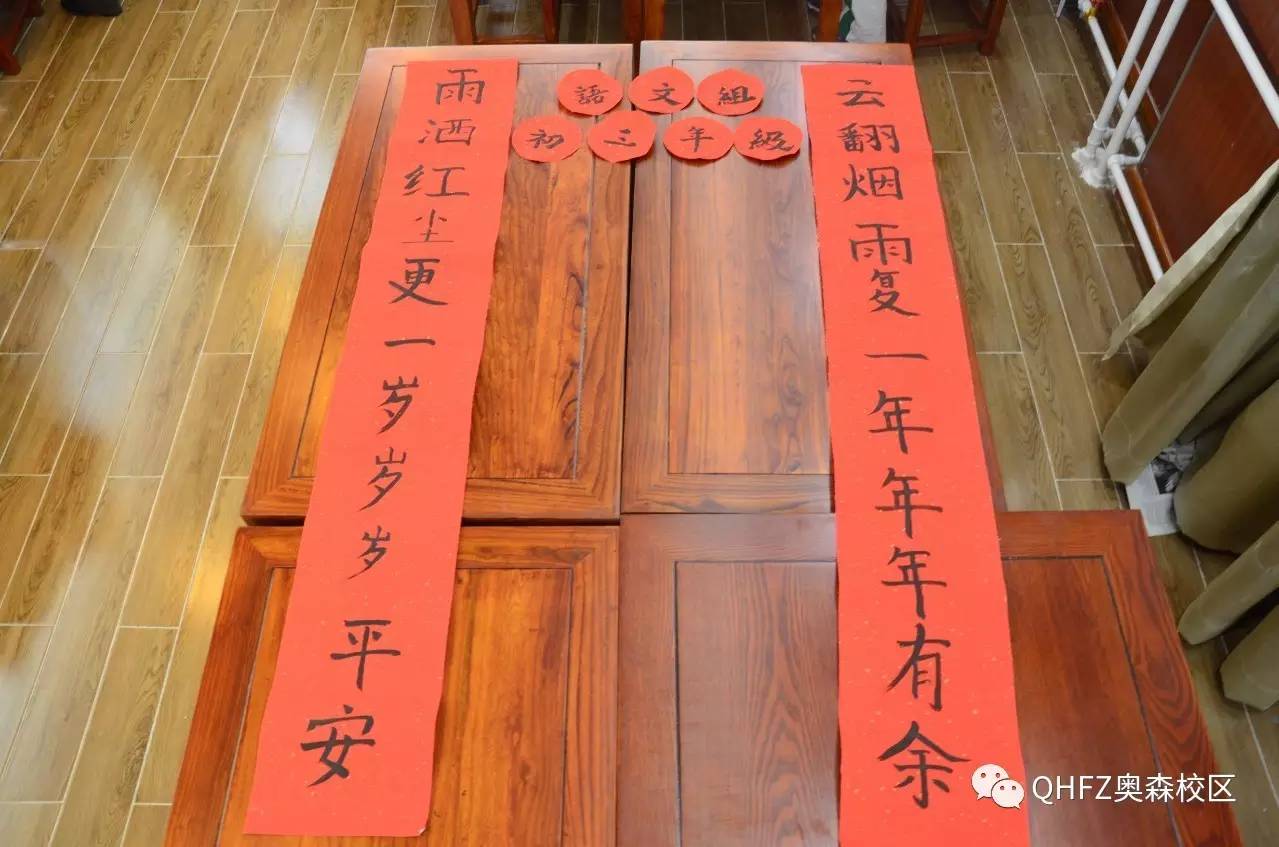 云翻烟雨复一年年年有余
語文組
初三年級
雨洒红尘更一岁岁岁平安
QHFZ奥森校区